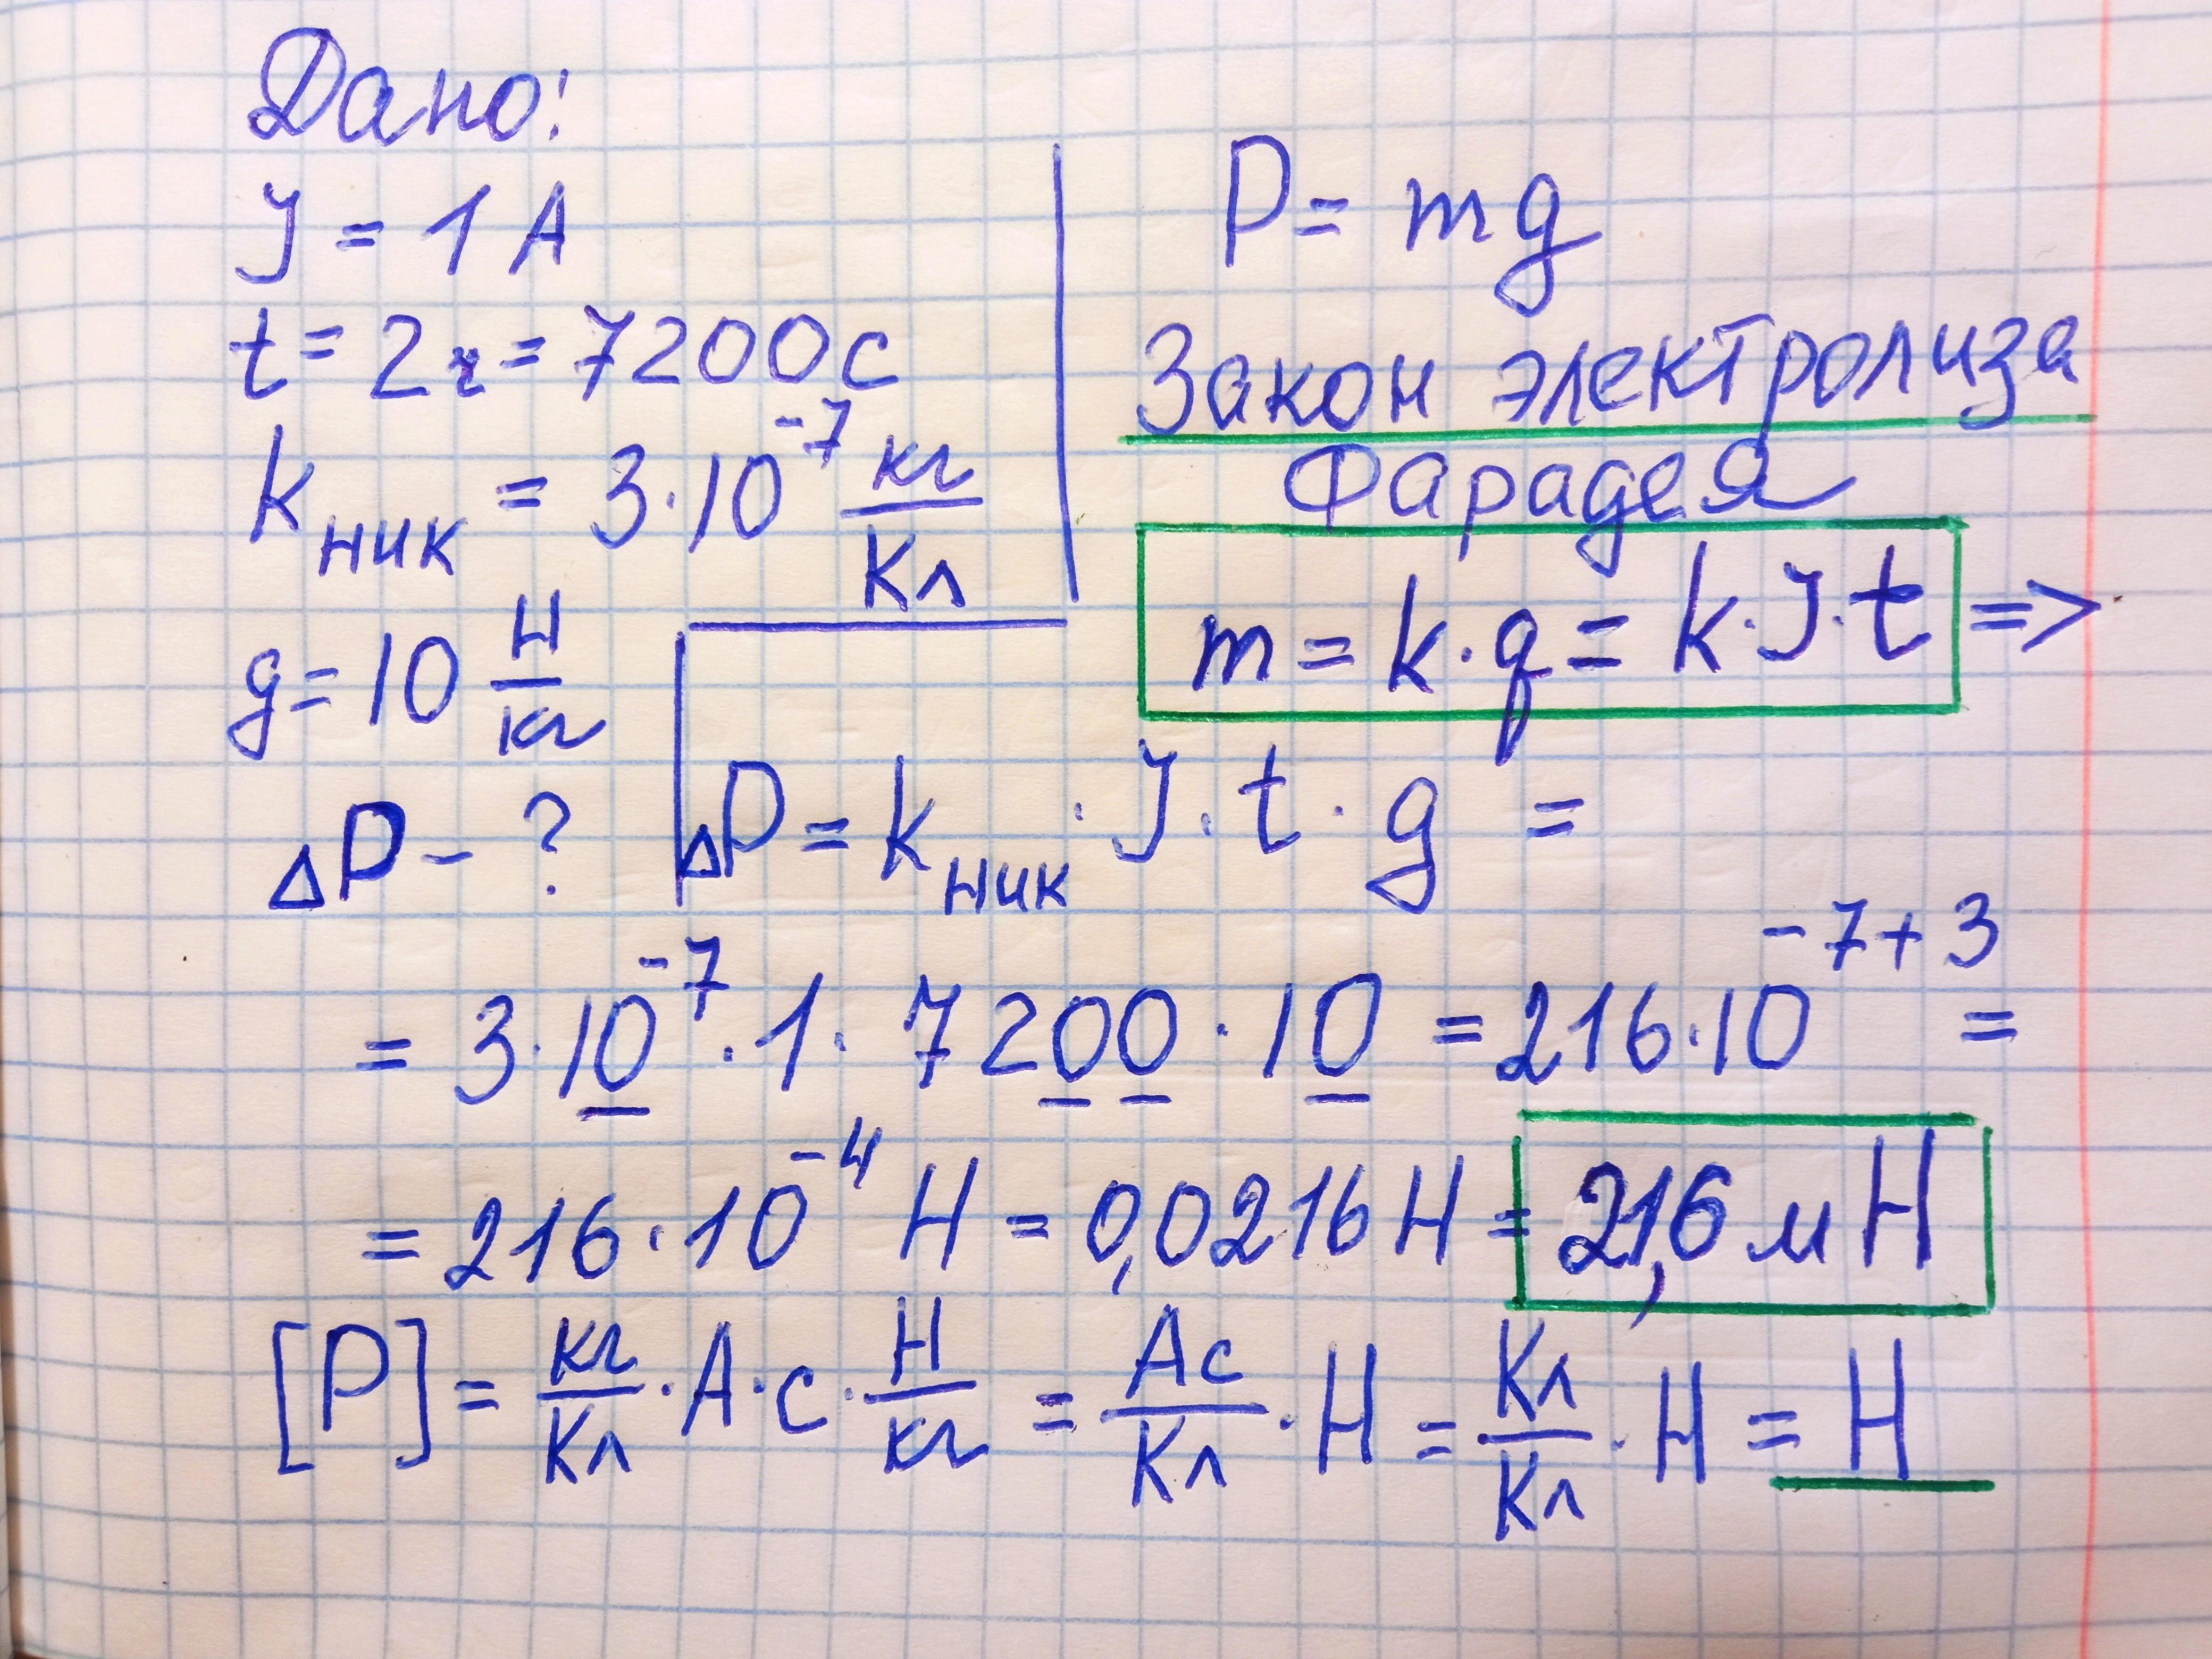 Дано:
J = 1 А
t = 2 ч = 7200 с
k ник = 3·10⁻⁷ кг/Кл
g = 10 Н/кг
ΔP - ?
P = mg
Закон электролиза
Фарадея
m = k·q = k·J·t =>
ΔP = k ник · J · t · g =
= 3·10⁻⁷ · 1 · 7200 · 10 = 216·10⁻⁷⁺³ =
= 216·10⁻⁴ Н = 0,0216 Н = 21,6 мН
[P] = кг/Кл · А · с · Н/кг = Ас/Кл · Н = Кл/Кл · Н = Н